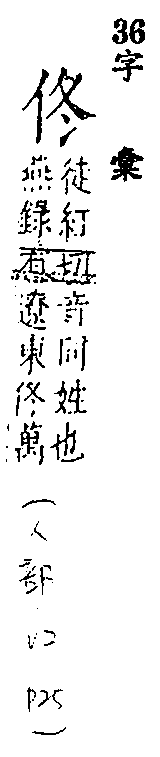 36
字彙
佟
徒紅切音同姓也
燕錄有遼東佟萬
(人部
P25)